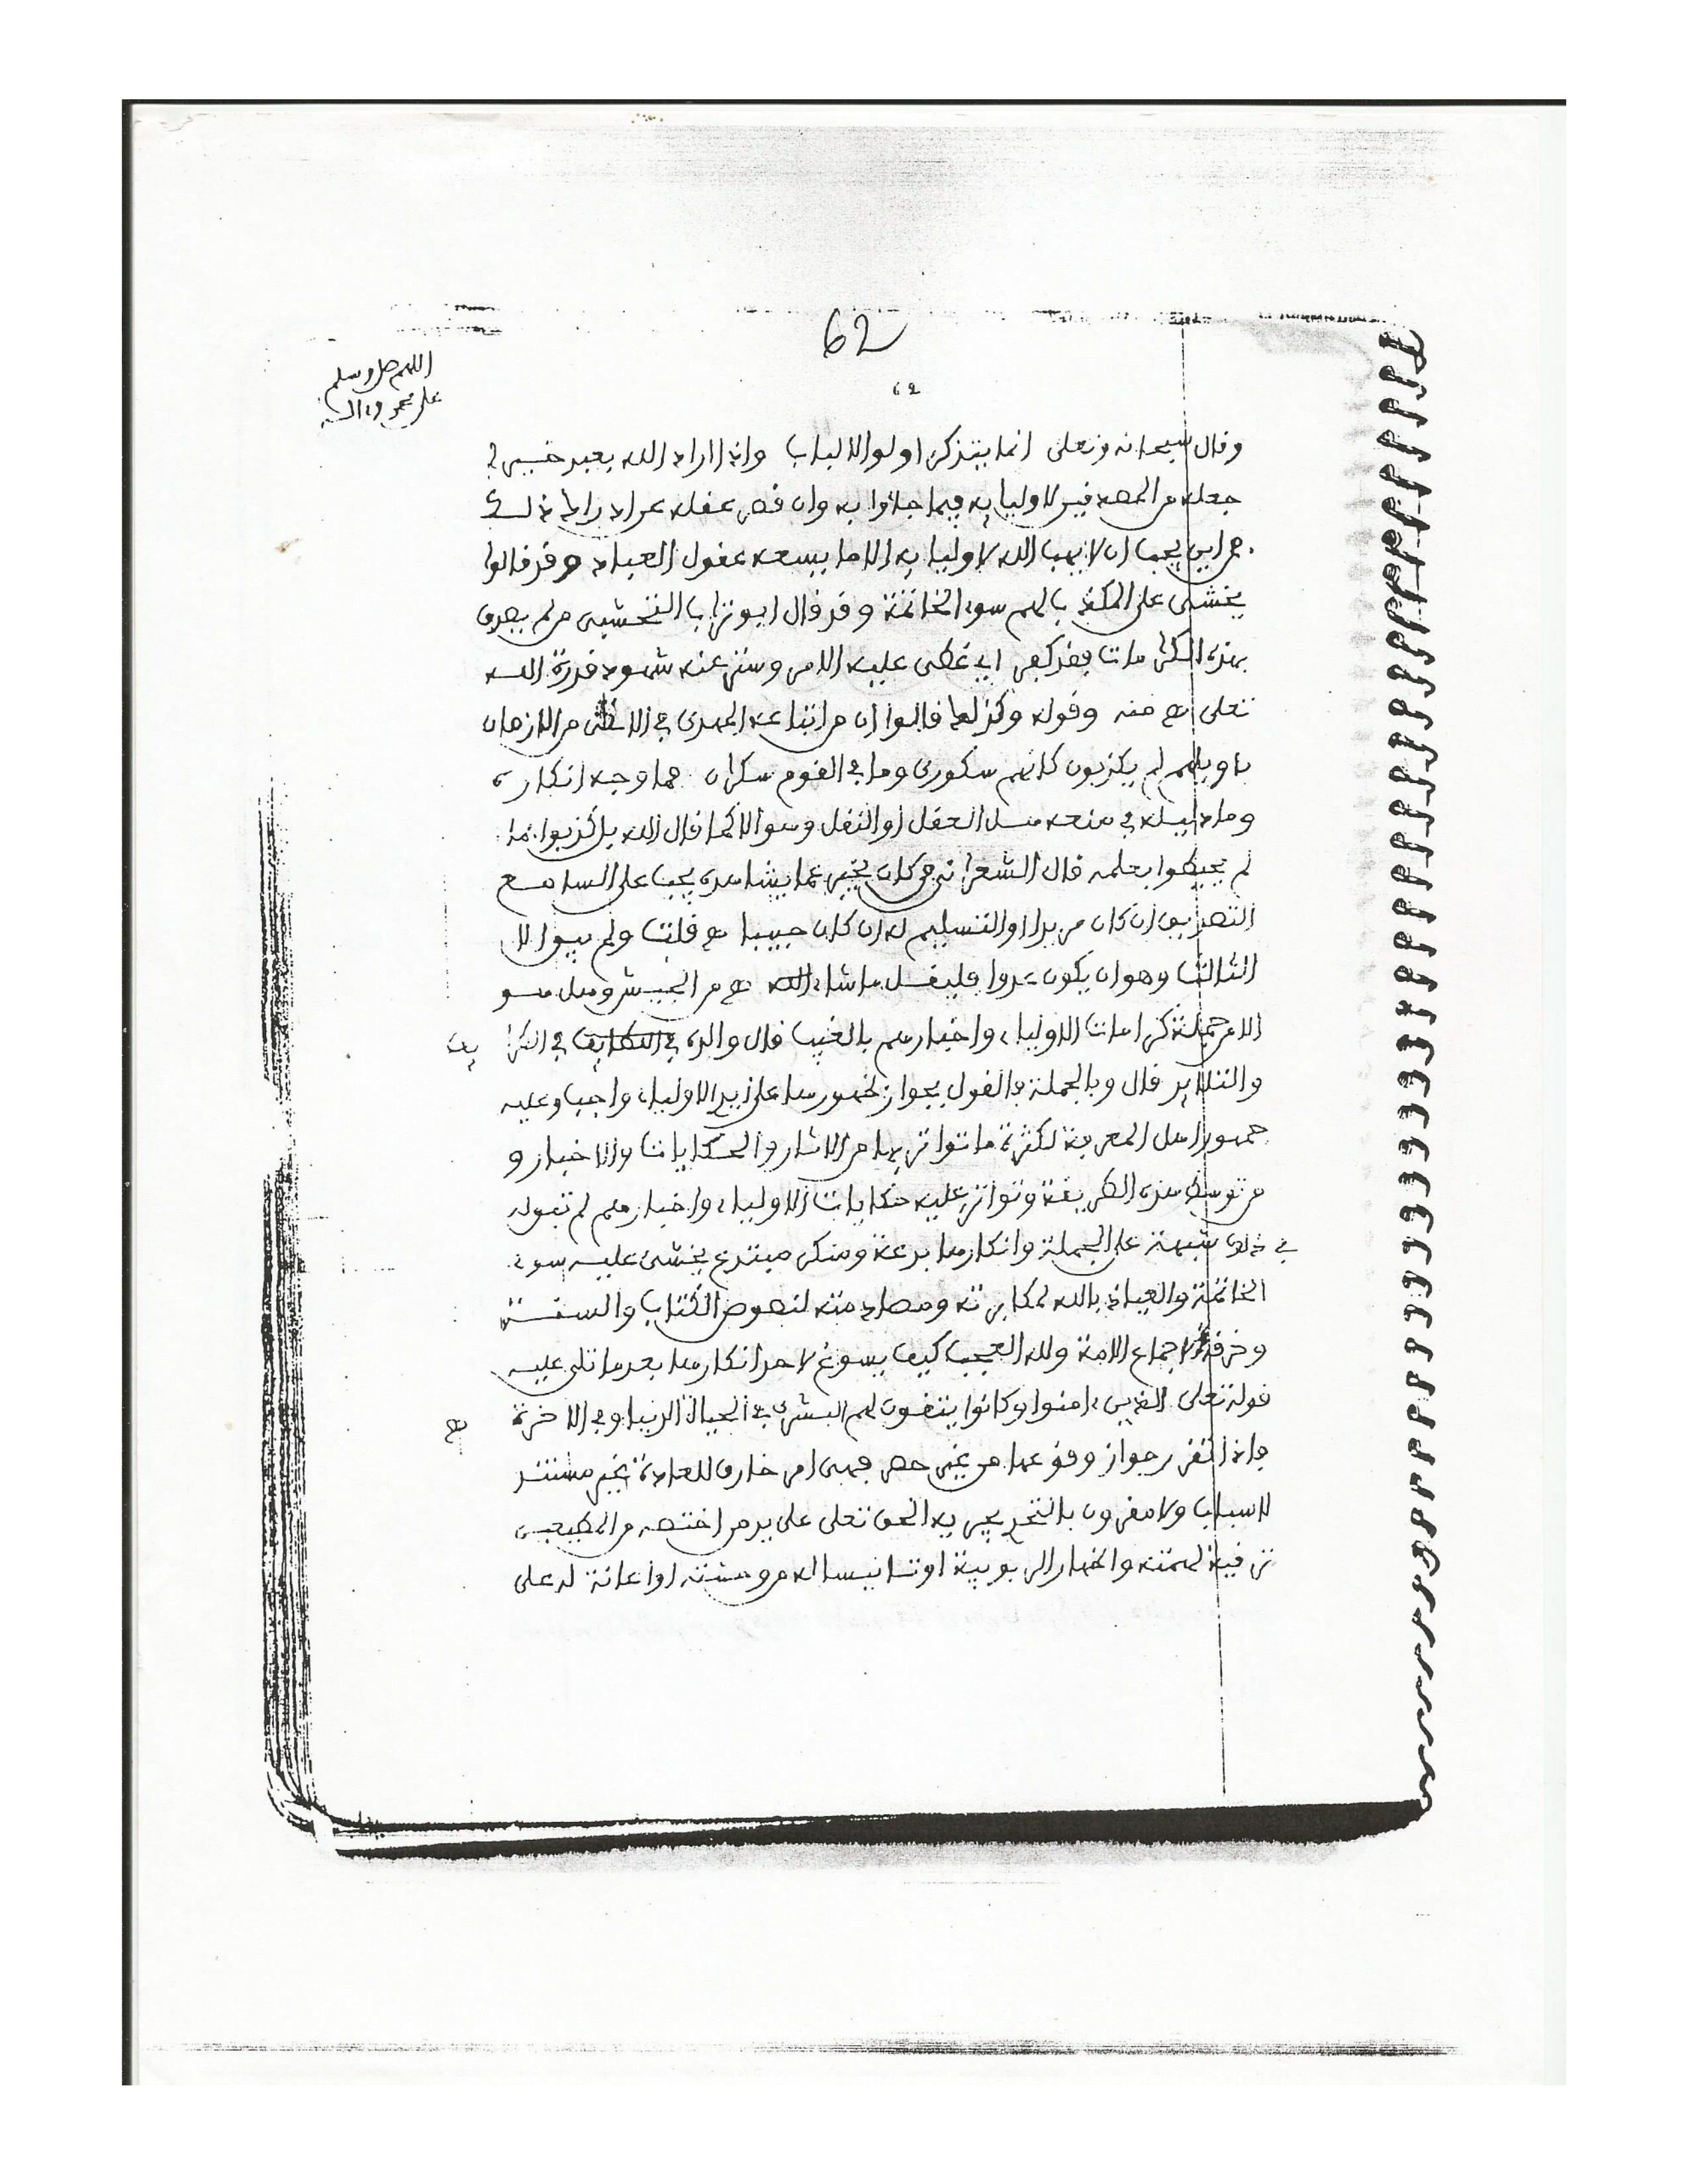 62
62
اللهم صل وسلم
على محمد وءاله
وقال سبحانه وتعلى انما يتذكر اولوا الالباب واذا اراد الله بعبد خيرا
جعله من المصدقين لاوليايه فيما جاؤا به وان قصر عقله عن ادراك ذلك
من اين يجب ان لا يهب الله لاوليايه الا ما يسعه عقول العباد وقد قالوا
يخشى على المكذب بالهم سوء الخاتمة وقد قال ابو تراب النخشبى من لم يصدق
بهذه الكرامات فقد كفر اي غطى عليه الامر وستر عنه شهود قدرة الله
تعلى اهـ منه وقوله وكذلك قالوا ان من اتباعه المهدى في من الازمان
يا ويلهم لم يكذبون كانهم سكورى وما في القوم سكران فما وجه انكاره
وما دليله في منعه هل العقل او النقل وهو الا كما قال الله بل كذبوا بما
لم يحيطوا بعلمه قال الشعرانى من كان يخبر عما يشاهده يجب على السامع
التصديق ان كان مريدا او التسليم له ان كان حبيبا اهـ قلت ولم يبق الا
الثالث وهو ان يكون عدوا فليقل ما شاء الله اهـ من الجيش وهل هو
الا من جملة كرامات الاولياء واخبارهم بالغيب قال والدى في الطرايف
والتلايد قال وبالجملة فالقول بجواز ظهورها على ايد الاولياء واجب وعليه
جمهور اهل المعرفة لكثرة ما تواتر بها من الاثار والحكايات والاخبار و
من توسط هذه الطريقة وتواتر عليه حكايات الاولياء واخبارهم لم تبق له
في ذلك شبهة على الجملة وانكارها بدعة ومنكر مبتدع يخشى عليه سوء
الخاتمة والعياذ بالله لمكابرته ومصادمته لنصوص الكتاب والسنة
وخرقه لاجماع الامة ولله العجب كيف يسوغ لاحد انكارها بعد ما تلى عليه
قوله تعلى الذين ءامنوا وكانوا يتقون لهم البشرى في الحياة الدنيا وفي الاخرة اهـ
فاذا تقرر جواز وقوعها من غير حصر فهى امر خارق للعادة غير مستند
لاسباب ولا مقرون بالتحد يجريه الحق تعلى على يد من اختصه من المطيعين
ترقية لهمته واظهار الربوبية او تانيسا له من وحشته او اعانة له على